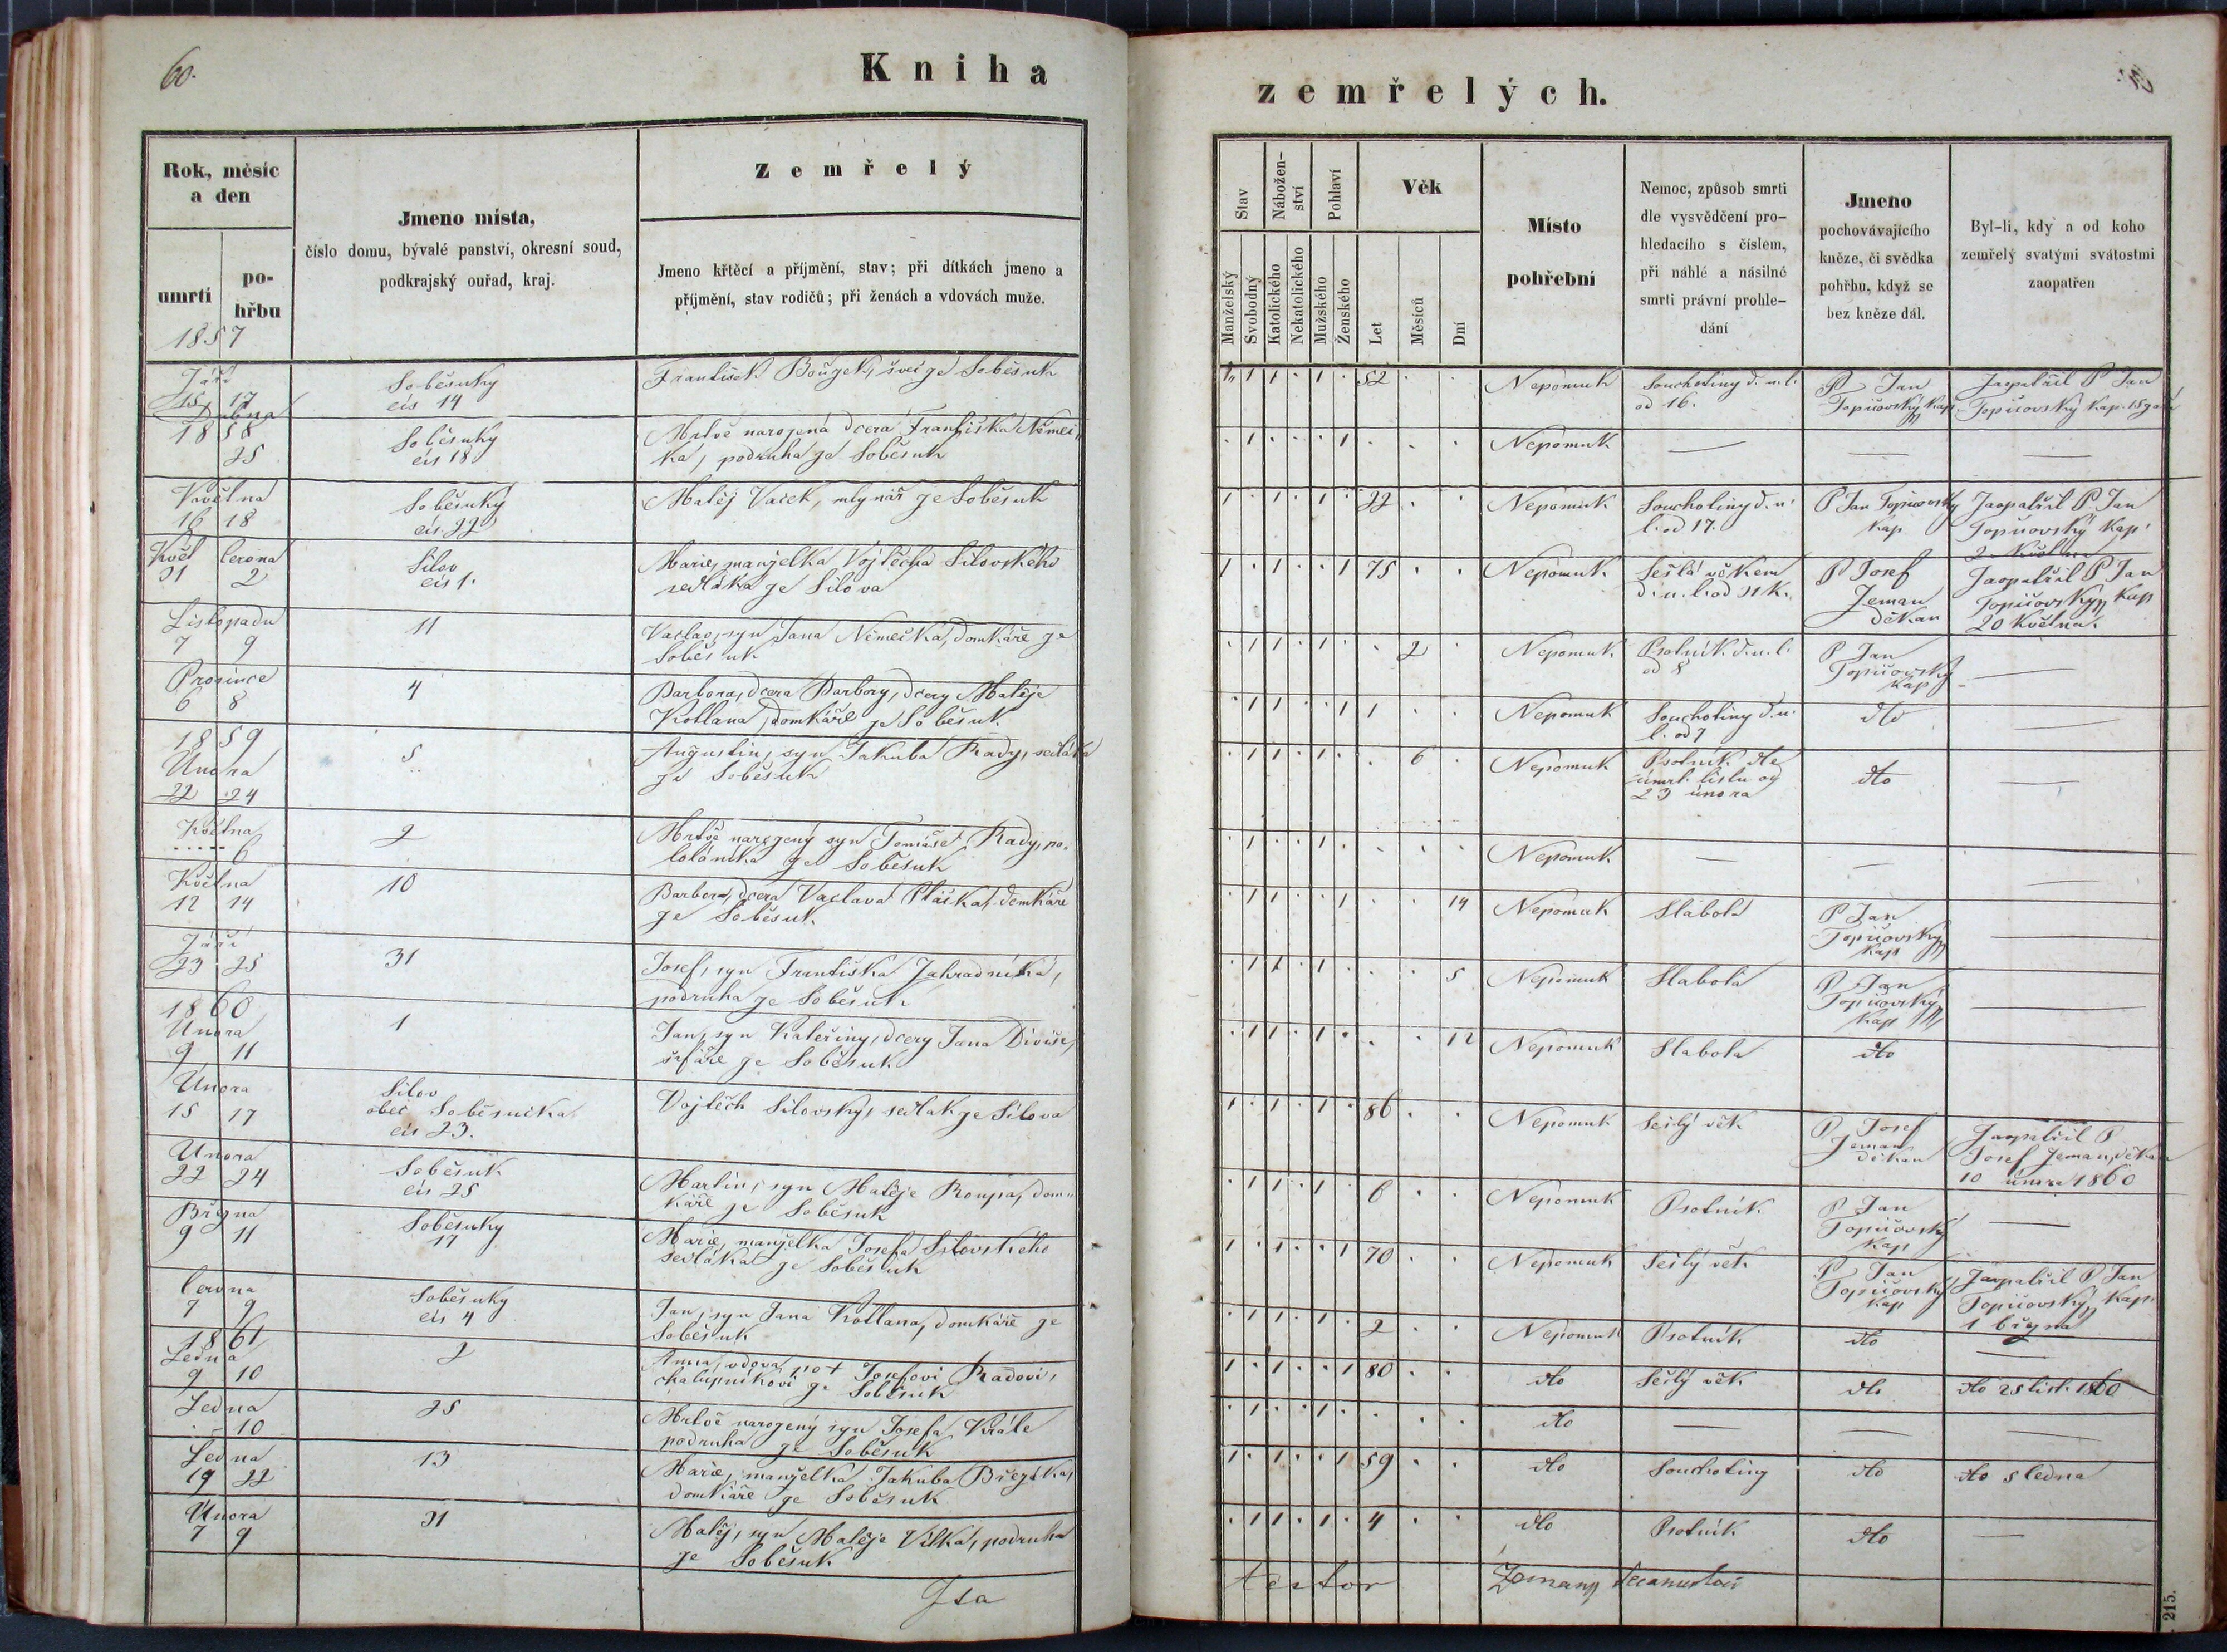 60.
Kniha
Rok, měsíc
a den
umrtí
po-
hřbu
1857
Jmeno místa,
číslo domu, bývalé panství, okresní soud,
podkrajský ouřad, kraj.
Zemřelý
Jmeno křtěcí a příjmění, stav; při dítkách jmeno a
příjmění, stav rodičů; při ženách a vdovách muže.
Září
15 17
Soběsuky
čís 14
František švec ze Soběsuk
Dubna
1858
25
Soběsuky
čís 18
Mrtvě narozená dcera Františka Němeč
ka, podruha ze Soběsuk
Května
16 18
Soběsuky
čís. 22
Matěj Vacek, mlynář ze Soběsuk
Květ června
31 2
Silov
čís 1.
Marie, manželka Vojtěcha Silovského
sedláka ze Silova
Listopadu
7 9
11
Vaclav, syn Jana Němečka, domkáře ze
Soběsuk
Prosince
6 8
4
Barbora, dcera Barbory, dcery Matěje
Kotlana, domkáře ze Soběsuk
1859
Února
22 24
5
Augustin, syn Jakuba Rady, sedláka
ze Soběsuk
Května
6
2
Mrtvě narozený syn Tomáše Rady, po-
loláníka ze Soběsuk
Května
12 14
10
Barbora, dcera Vaclava Ptáčka, domkáře
ze Soběsuk
Září
23 25
31
Josef, syn Františka Zahradníka,
podruha ze Soběsuk
1860
Února
9 11
1
Jan, syn Kateřiny, dcery Jana Diviše,
šafáře ze Soběsuk
Února
15 17
Silov
obec Soběsucka
čís 23.
Vojtěch Silovský, sedlak ze Silova
Února
22 24
Soběsuk
čís 25
Martin, syn Matěje Roupa, dom-
káře ze Soběsuk
Března
9 11
Soběsuky
17
Marie, manželka Josefa Silovského
sedláka ze Soběsuk
června
7 9
Soběsuky
čís 4
Jan, syn Jana Kotlana, domkáře ze
Soběsuk
1861
Ledna
9 10
2
Anna, vdova po + Josefovi Radovi,
chalupníkovi ze Soběsuk
Ledna
10
25
Mrtvě narozený syn Josefa Krále
podruha ze Soběsuk
Ledna
19 22
13
Marie, manželka Jakuba
domkáře ze Soběsuk
Února
7 9
31
Matěj, syn Matěje Vlka, podruha
ze Soběsuk
zemřelých.
Stav
Nábožen-
ství
Pohlaví
Věk
Manželský
Svobodný
Katolického
Nekatolického
Mužského
Ženského
Let
Měsíců
Dní
Místo
pohřební
Nemoc, způsob smrti
dle vysvědčení pro-
hledacího s číslem,
při náhlé a násilné
smrti právní prohle-
dání
Jmeno
pochovávajícího
kněze, či svědka
pohřbu, když se
bez kněze dál.
Byl-li, kdy a od koho
zemřelý svatými svátostmi
zaopatřen
1 1 1 1 52 Nepomuk Souchotiny d. u. l.
od 16.
P Jan
Topičovský Kap
Zaopatřil P Jan
Topičovský Kap. 15 září
1 1 1 Nepomuk —
1 1 1 22 Nepomuk Souchotiny d. u.
l. od 17.
P Jan Topičovský
Kap
Zaopatřil P Jan
Topičovský Kap.
2 Května
1 1 1 75 Nepomuk Sešlá věkem
d. u. l. od 31 k.
P Josef
Zeman
děkan
Zaopatřil P Jan
Topičovský Kap
20 Května.
1 1 1 2 Nepomuk Psotník d. u. l.
od 8
P Jan
Topičovský
Kap
—
1 1 1 1 Nepomuk Souchotiny d. u.
l. od 7
dto
—
1 1 1 6 Nepomuk Psotník dle
úmrt. listu od
23 února
dto
—
1 1 1 Nepomuk — — —
1 1 1 14 Nepomuk Slabota
P Jan
Topičovský
Kap
—
1 1 1 5 Nepomuk Slabota
P Jan
Topičovský
Kap
—
1 1 1 12 Nepomuk Slabota dto
1 1 1 86 Nepomuk Sešlý věk
P Josef
Zeman
děkan
Zaopatřil P
Josef Zeman, děkan
10 února 1860
1 1 1 6 Nepomuk Psotník
P Jan
Topičovský
Kap
—
1 1 1 70 Nepomuk Sešlý věk
P Jan
Topičovský
Kap
Zaopatřil P Jan
Topičovský Kap.
1 března
1 1 1 2 Nepomuk Psotník dto —
1 1 1 80 dto Sešlý věk dto dto 25 list. 1860
1 1 1 dto — — —
1 1 1 59 dto Souchotiny dto dto 5 ledna
1 1 1 4 dto Psotník dto —
Zeman
215.